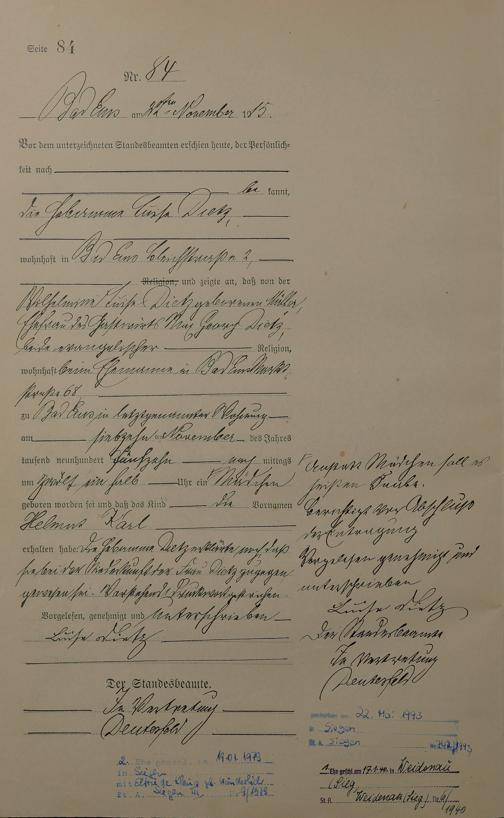 Seite 84
Nr. 84
Bad Ems am 22ten November 1915.
Vor dem unterzeichneten Standesbeamten erschien heute, der Persönlich-
keit nach
be kannt,
die Hebamme Luise Dietz,
wohnhaft in Bad Ems 2,
Religion, und zeigte an, daß von der
Wilhelmine Luise Dietz geborenen Müller,
Ehefrau des Gastwirts Max Georg Dietz,
beide evangelischer Religion,
wohnhaft beim Ehemanne in Bad Ems
straße 68,
zu Bad Ems in letztgenannter Wohnung
am siebzehn November des Jahres
tausend neunhundert fünfzehn nach mittags
um zwölf ein halb Uhr ein Mädchen
geboren worden sei und daß das Kind die Vornamen
Helmut Karl
erhalten habe. Die Hebamme Dietz erklärte, daß
sie bei der Niederkunft der Frau Dietz zugegen
gewesen sei.
Vorgelesen, genehmigt und unterschrieben
Luise Dietz
Der Standesbeamte.
In Vertretung
Anstatt Mädchen soll es
heißen Knabe.
Berichtigt vor Abschluß
der Eintragung
Vorgelesen genehmigt und
unterschrieben
Luise Dietz
Der Standesbeamte
In Vertretung
gestorben am 22. Mai 1993
in Siegen
St.A. Siegen
2. Ehe geschl. am 19.01.1973
in Siegen
1. Ehe geschl. am 17.1.40 in Weidenau
(Sieg)
St.A. Weidenau (Sieg)
1940